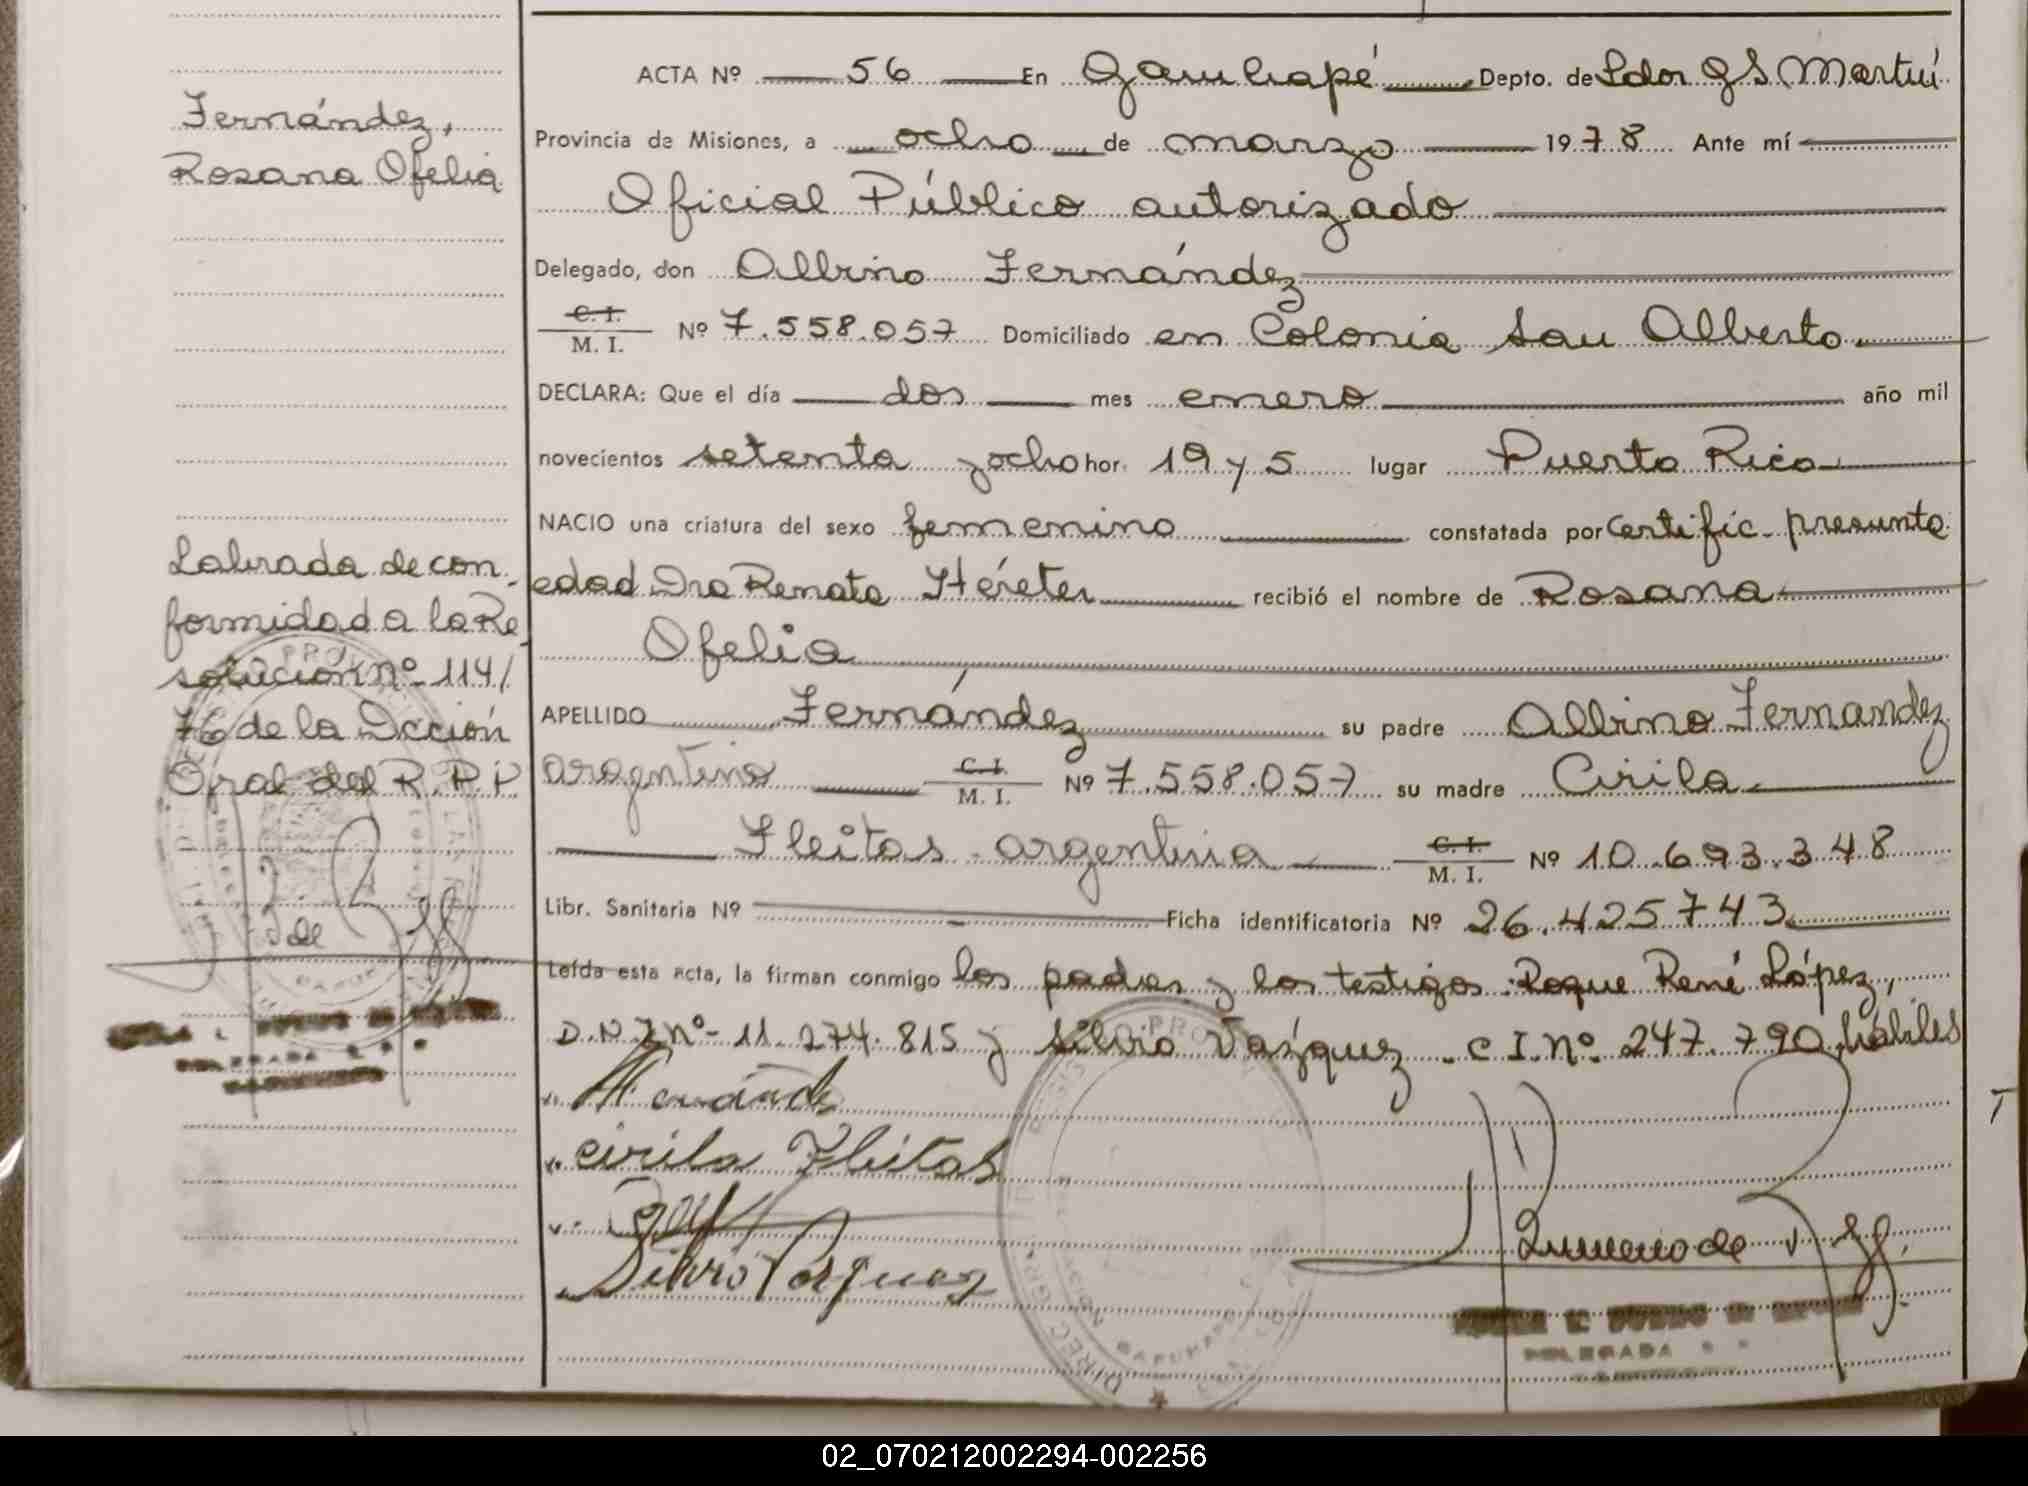 Fernández,
Rosana Ofelia
Labrada de con-
formidad a la Re
solución nº 114/
76 de la Dcción
Gral del R.P.P
ACTA Nº 56 En Garuhapé Depto. de Ldor G S Martín
Provincia de Misiones, a ocho de marzo 1978 Ante mí
Oficial Público autorizado
Delegado, don Albino Fernández
C. I. / M. I. Nº 7.558.057 Domiciliado en Colonia San Alberto
DECLARA: Que el día dos mes enero año mil
novecientos setenta y ocho hor. 19 y 5 lugar Puerto Rico
NACIO una criatura del sexo femenino constatada por Certific. presunta
edad Dra Renata Héreter recibió el nombre de Rosana
Ofelia
APELLIDO Fernández su padre Albino Fernandez
argentino C. I. / M. I. Nº 7.558.057 su madre Cirila
Fleitas - argentina C. I. / M. I. Nº 10.693.348
Libr. Sanitaria Nº Ficha identificatoria Nº 26.425.743
Leída esta acta, la firman conmigo los padres y los testigos: Roque René López,
D.N.I nº- 11.274.815 y Silvio Vázquez - C I. nº. 247.790, hábiles
Cirila Fleitas
Silvio Vazquez
DELEGADA
02_070212002294-002256